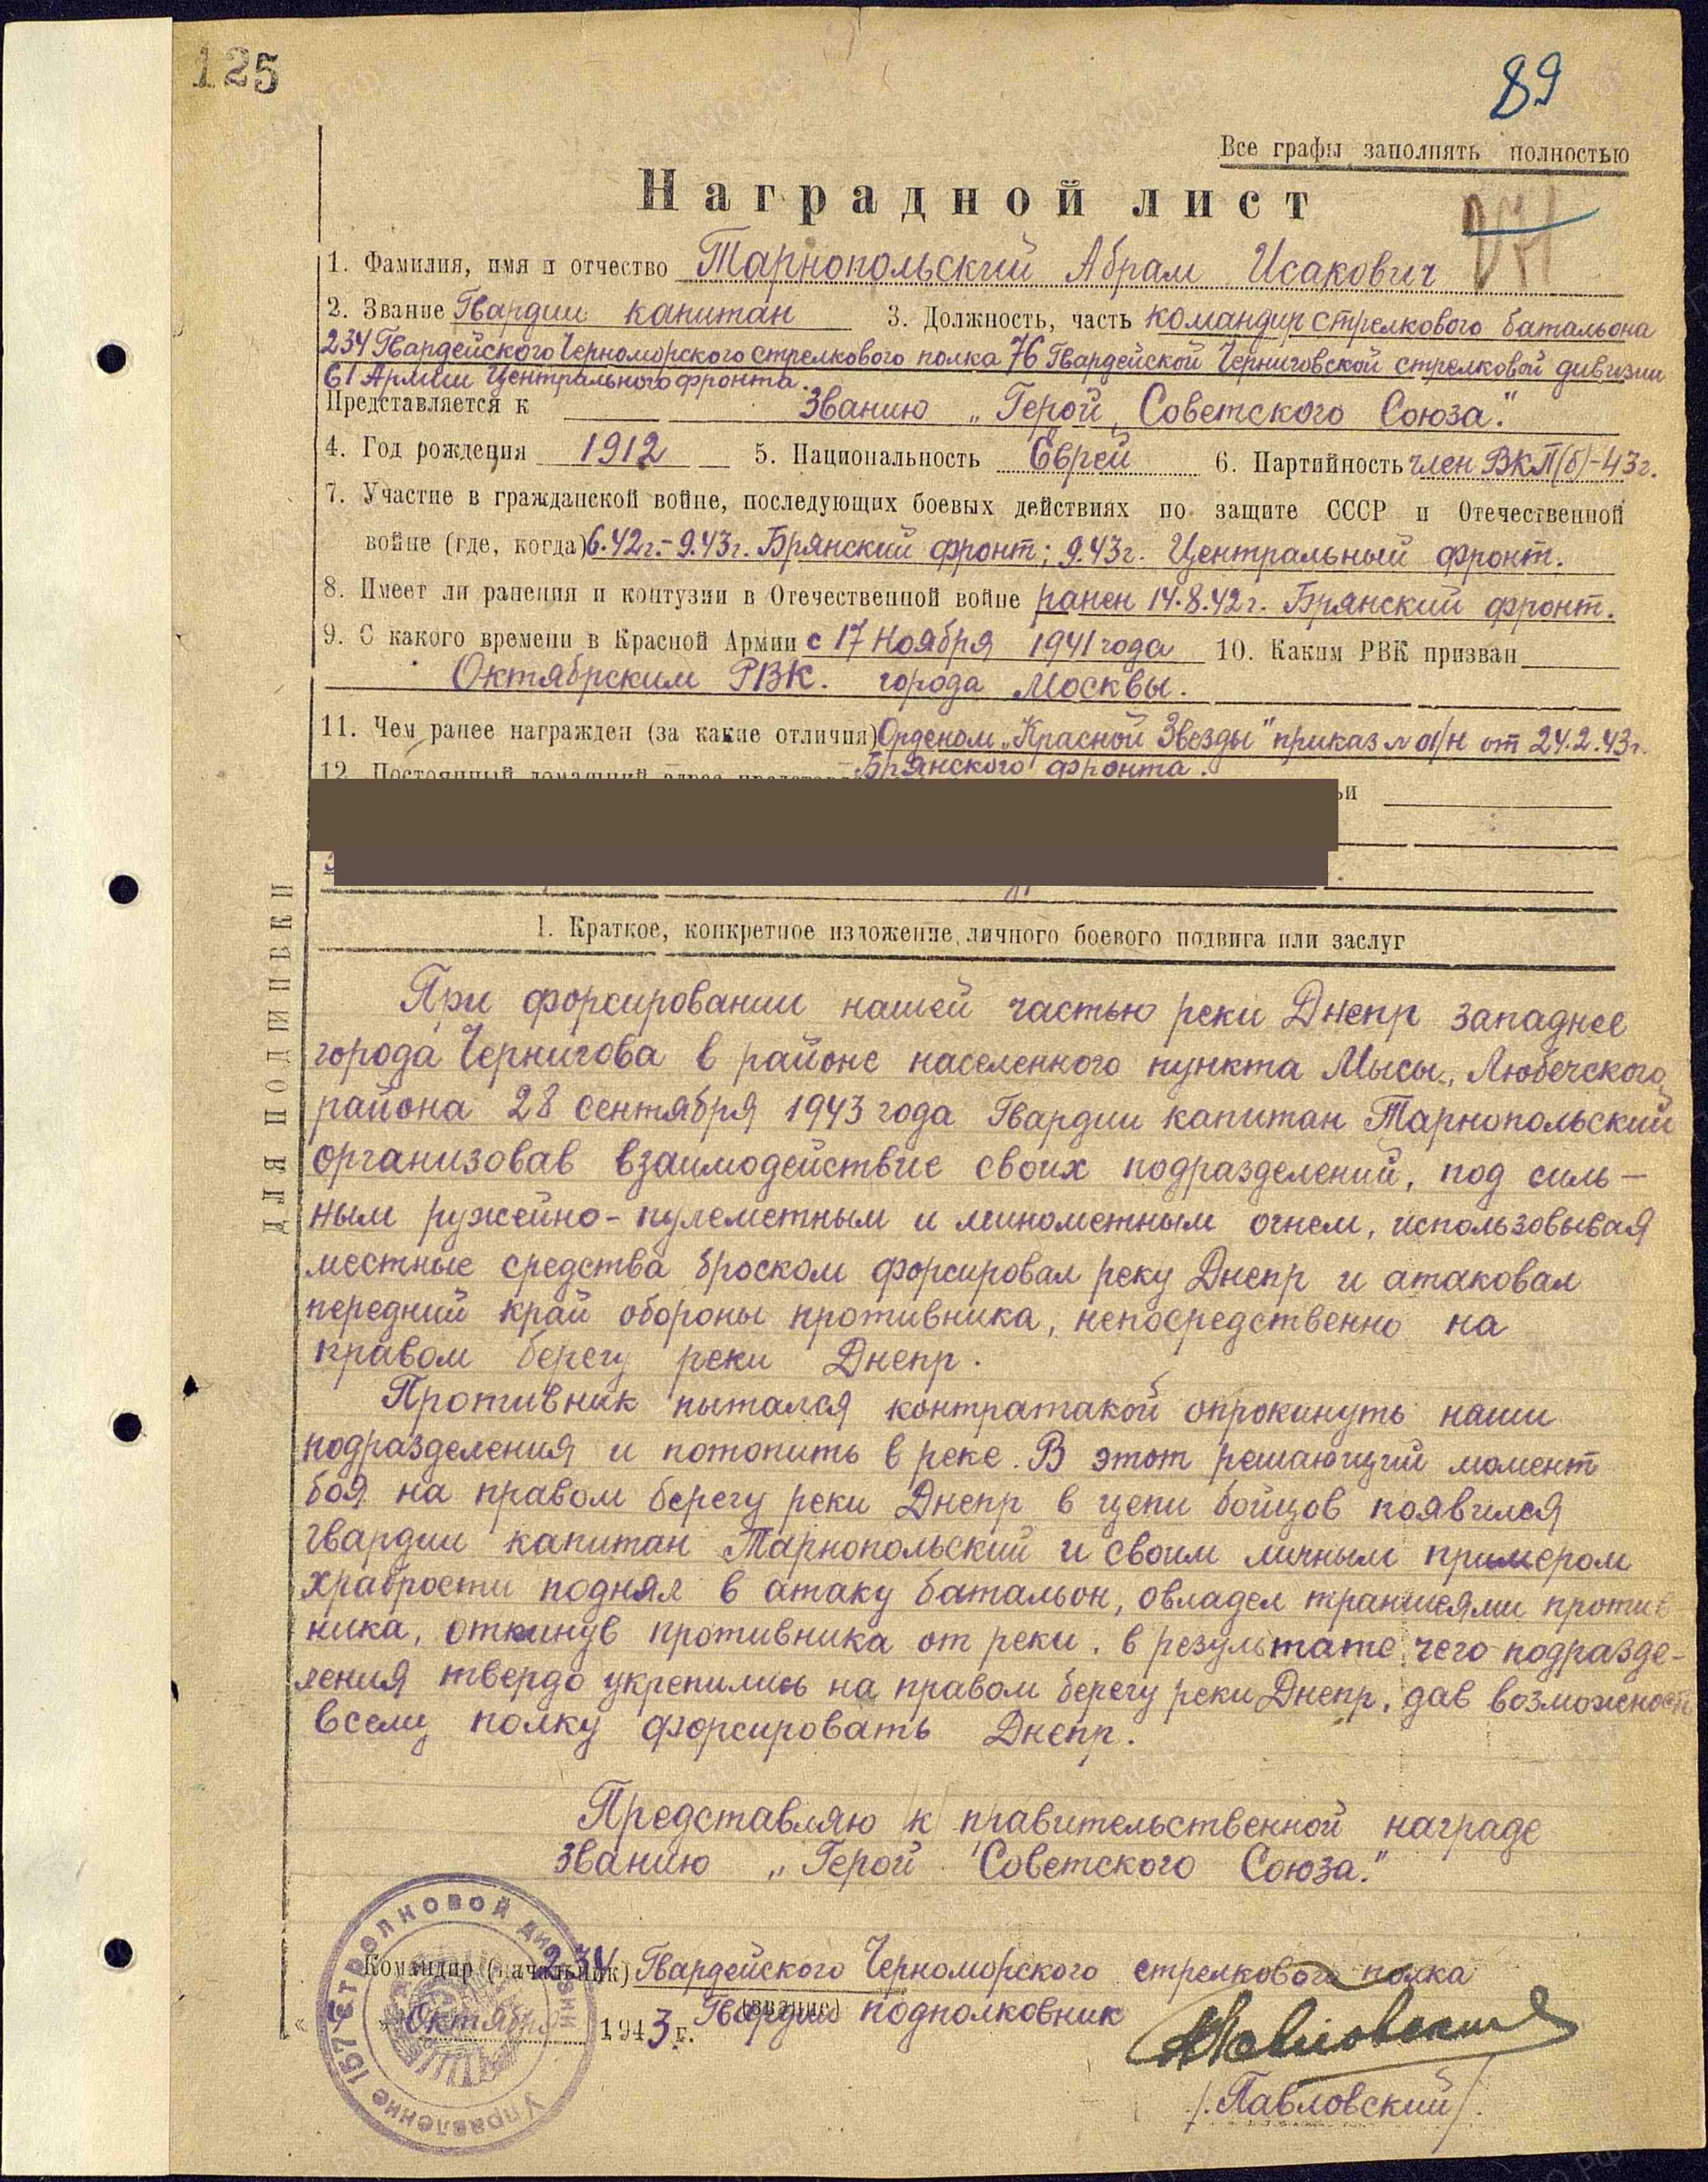 125
89
Все графы заполнять полностью
Наградной лист
1. Фамилия, имя и отчество Тарнопольский Абрам Исакович
2. Звание Гвардии капитан 3. Должность, часть командир стрелкового батальона
234 Гвардейского Черноморского стрелкового полка 76 Гвардейской Черниговской стрелковой дивизии
61 Армии Центрального фронта.
Представляется к Званию „Герой Советского Союза."
4. Год рождения 1912 5. Национальность Еврей 6. Партийность член ВКП(б)-43г.
7. Участие в гражданской войне, последующих боевых действиях по защите СССР и Отечественной
войне (где, когда) 6.42г.-9.43г. Брянский фронт; 9.43г. Центральный фронт.
8. Имеет ли ранения и контузии в Отечественной войне ранен 14.8.42г. Брянский фронт.
9. С какого времени в Красной Армии с 17 Ноября 1941 года 10. Каким РВК призван
Октябрским РВК. города Москвы.
11. Чем ранее награжден (за какие отличия) Орденом „Красной Звезды" приказ №01/н от 24.2.43г.
Брянского фронта.
12. Постоянный домашний адрес
ДЛЯ ПОДШИВКИ
1. Краткое, конкретное изложение личного боевого подвига или заслуг
При форсировании нашей частью реки Днепр западнее
города Чернигова в районе населенного пункта Мысы, Любечского
района 28 сентября 1943 года Гвардии капитан Тарнопольский
организовав взаимодействие своих подразделений, под силь-
ным ружейно-пулеметным и минометным огнем, использовывая
местные средства броском форсировал реку Днепр и атаковал
передний край обороны противника, непосредственно на
правом берегу реки Днепр.
Противник пытался контратакой опрокинуть наши
подразделения и потопить в реке. В этот решающий момент
боя на правом берегу реки Днепр в цепи бойцов появился
гвардии капитан Тарнопольский и своим личным примером
храбрости поднял в атаку батальон, овладел траншеями против
ника, откинув противника от реки, в результате чего подразде-
ления твердо укрепились на правом берегу реки Днепр, дав возможность
всему полку форсировать Днепр.
Представляю к правительственной награде
званию „Герой Советского Союза."
Командир (начальник) 234 Гвардейского Черноморского стрелкового полка
(звание) Гвардии подполковник
« » Октября 1943 г.
/Павловский/
Управление 157 стрелковой дивизии